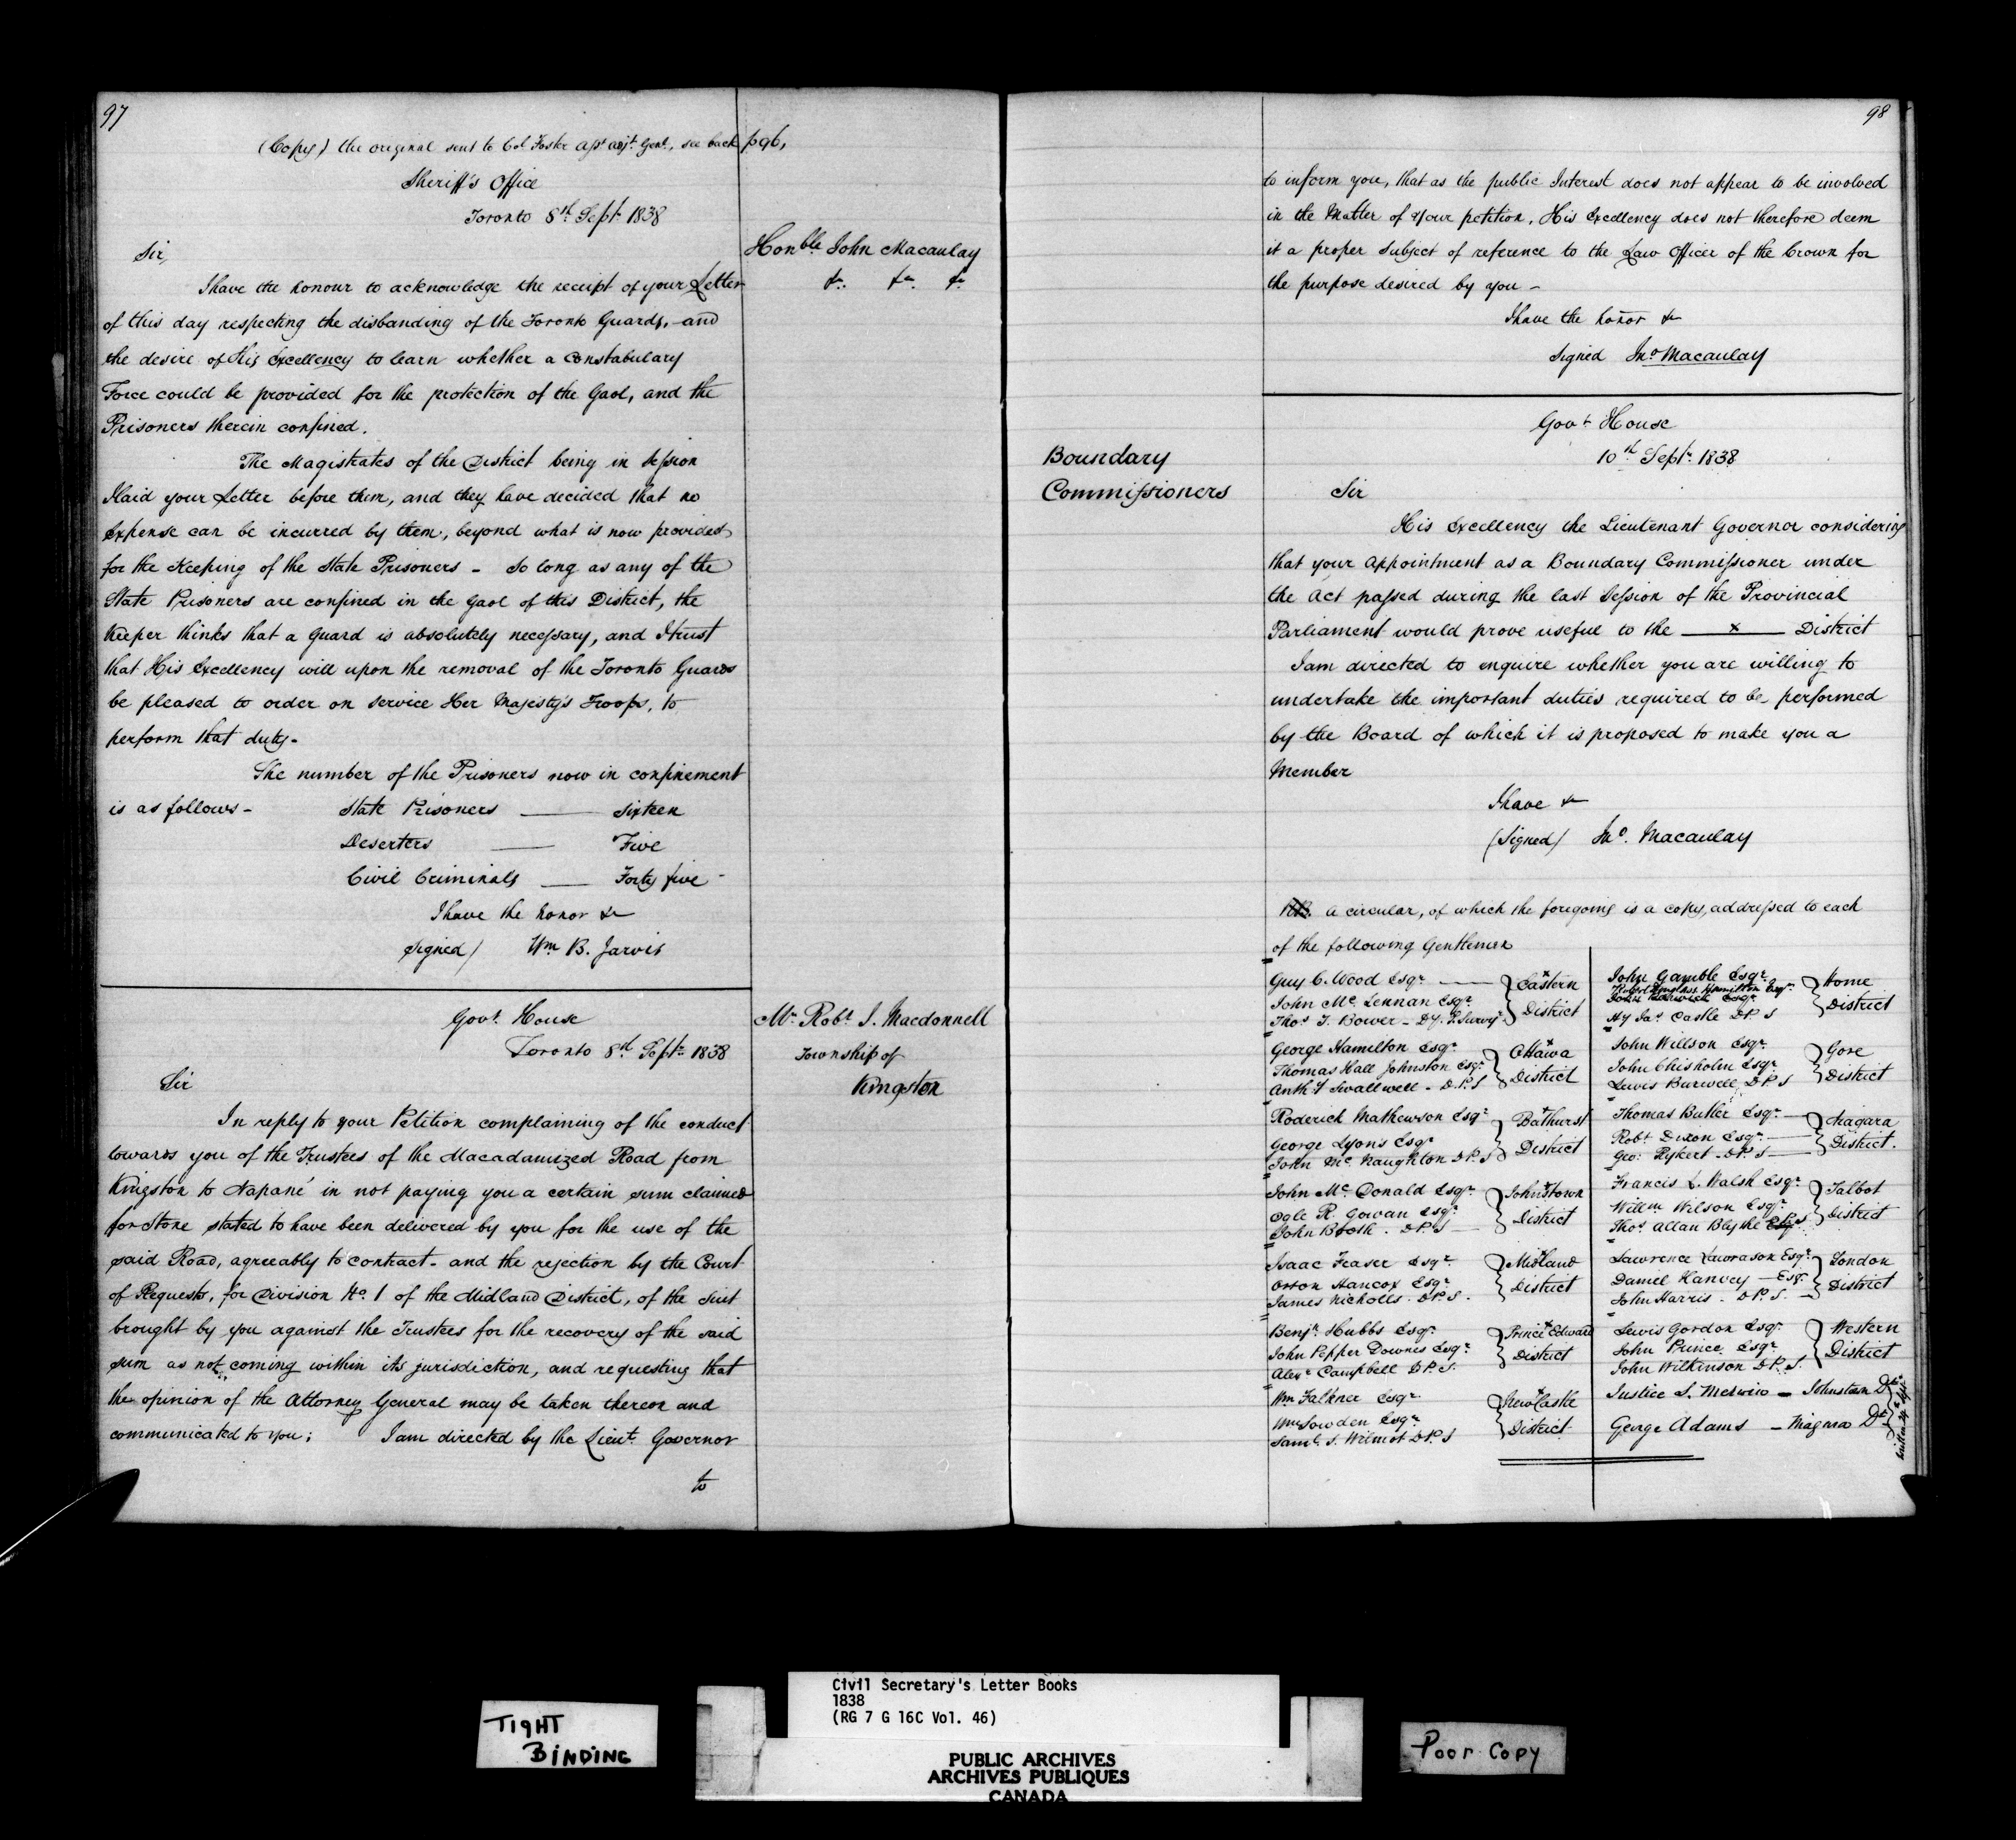 97
(Copy) the original sent to Col Foster asst adjt. Genl., see back p96,
Sheriff's Office
Toronto 8th Septr 1838
Honble. John Macaulay
&c. &c. &c.
Sir,
I have the honour to acknowledge the receipt of your Letter
of this day respecting the disbanding of the Toronto Guards, and
the desire of His Excellency to learn whether a Constabulary
Force could be provided for the protection of the Gaol, and the
Prisoners therein confined.
The Magistrates of the District being in Session
I laid your Letter before them, and they have decided that no
Expense can be incurred by them, beyond what is now provided
for the Keeping of the State Prisoners - So long as any of the
State Prisoners are confined in the Gaol of this District, the
Keeper thinks that a Guard is absolutely necessary, and I trust
that His Excellency will upon the removal of the Toronto Guards
be pleased to order on service Her Majesty's Troops, to
perform that duty-
The number of the Prisoners now in confinement
is as follows- State Prisoners — Sixteen
Deserters — Five
Civil Criminals — Forty five-
I have the honor &c
signed/ Wm B. Jarvis
Govt. House
Toronto 8th Septr 1838
Mr Robt J. Macdonnell
Township of
Kingston
Sir
In reply to your Petition complaining of the conduct
towards you of the Trustees of the Macadamized Road from
Kingston to Napané in not paying you a certain sum claimed
for Stone stated to have been delivered by you for the use of the
said Road, agreeably to contract- and the rejection by the Court
of Requests, for Division No. 1 of the Midland District, of the Suit
brought by you against the Trustees for the recovery of the said
sum as not coming within its jurisdiction, and requesting that
the opinion of the Attorney General may be taken thereon and
communicated to you; I am directed by the Lieut. Governor
to
98
to inform you, that as the public Interest does not appear to be involved
in the Matter of your petition, His Excellency does not therefore deem
it a proper subject of reference to the Law Officer of the Crown for
the purpose desired by you -
I have the honor &c
signed Jno Macaulay
Boundary
Commissioners
Govt House
10th Septr. 1838
Sir
His Excellency the Lieutenant Governor considering
that your Appointment as a Boundary Commissioner under
the Act passed during the last Session of the Provincial
Parliament would prove useful to the — x — District
I am directed to enquire whether you are willing to
undertake the important duties required to be performed
by the Board of which it is proposed to make you a
Member
I have &c
(Signed) Jno. Macaulay
A circular, of which the foregoing is a copy, addressed to each
of the following Gentlemen
Guy C. Wood Esqr
John Mc Lennan Esqr
Thos J. Bower - Dy. P. Survyr
x Eastern District
George Hamilton Esqr
Thomas Hall Johnston Esqr
Anthy Swallwell - D.P.S
x Ottawa District
Roderick Mathewson Esqr
George Lyons Esqr
John Mc Naughton D.P.S
x Bathurst District
John Mc Donald Esqr
Ogle R. Gowan Esqr
John Booth. D.P.S
x Johnstown District
Isaac Fraser Esqr
Orson Hancox Esqr
James Nicholls. D.P.S.
x Midland District
Benjn Hubbs Esqr
John Pepper Downes Esqr
Alexr Campbell D.P.S.
x Prince Edward District
Wm Falkner Esqr
Wm Sowden Esqr
Saml. S. Wilmot D.P.S
x NewCastle District
John Gamble Esqr
Hamilton Esqr
Hy Jas Castle D.P.S
Home District
John Willson Esqr
John Chisholm Esqr
Lewis Burwell D.P.S
Gore District
Thomas Butler Esqr
Robt Dixon Esqr
Geo: Rykert - D.P.S
Niagara District.
Francis L. Walsh Esqr
Willm Wilson Esqr
Thos Allan Blythe D.P.S
Talbot District
Lawrence Lawrason Esqr
Daniel Hanvey Esqr.
John Harris. D.P.S.
London District
Lewis Gordon Esqr
John Prince Esqr
John Wilkinson D.P.S.
Western District
Justice S. Merwin - Johnstown Dt
George Adams - Niagara Dt
written 24 Sept.
TIGHT
BINDING
Civil Secretary's Letter Books
1838
(RG 7 G 16C Vol. 46)
PUBLIC ARCHIVES
ARCHIVES PUBLIQUES
CANADA
Poor Copy